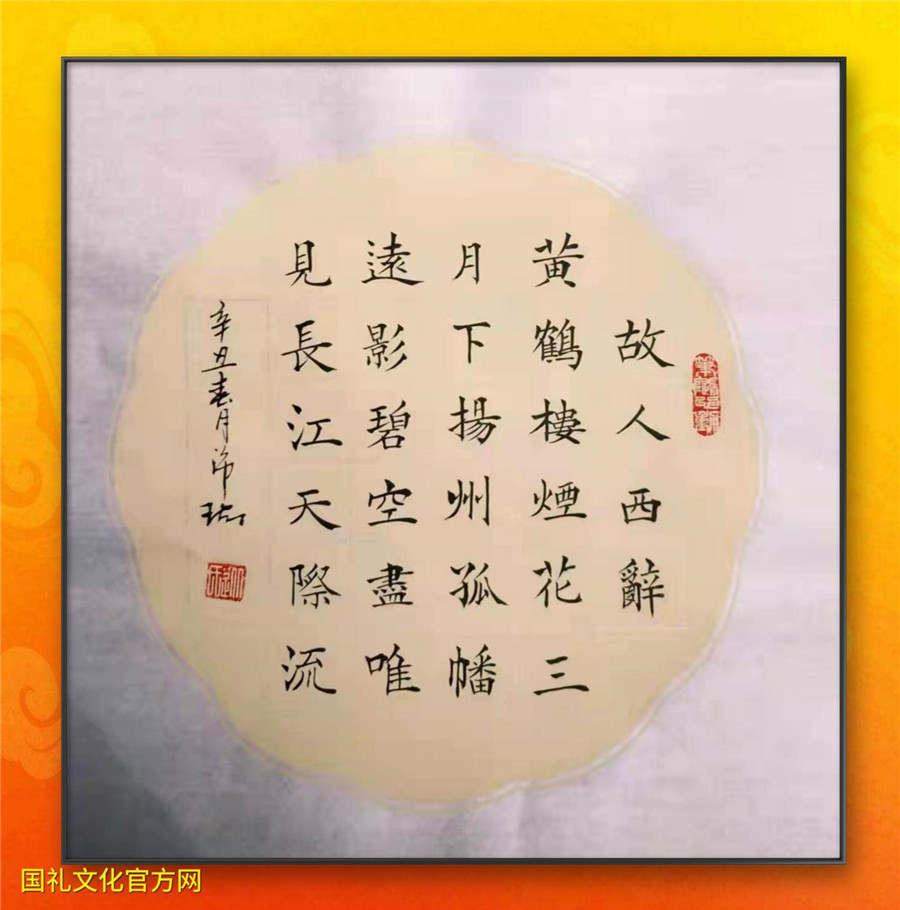 故人西辭
黃鶴樓煙花三
月下揚州孤幡
遠影碧空盡唯
見長江天際流
辛丑春月
国礼文化官方网